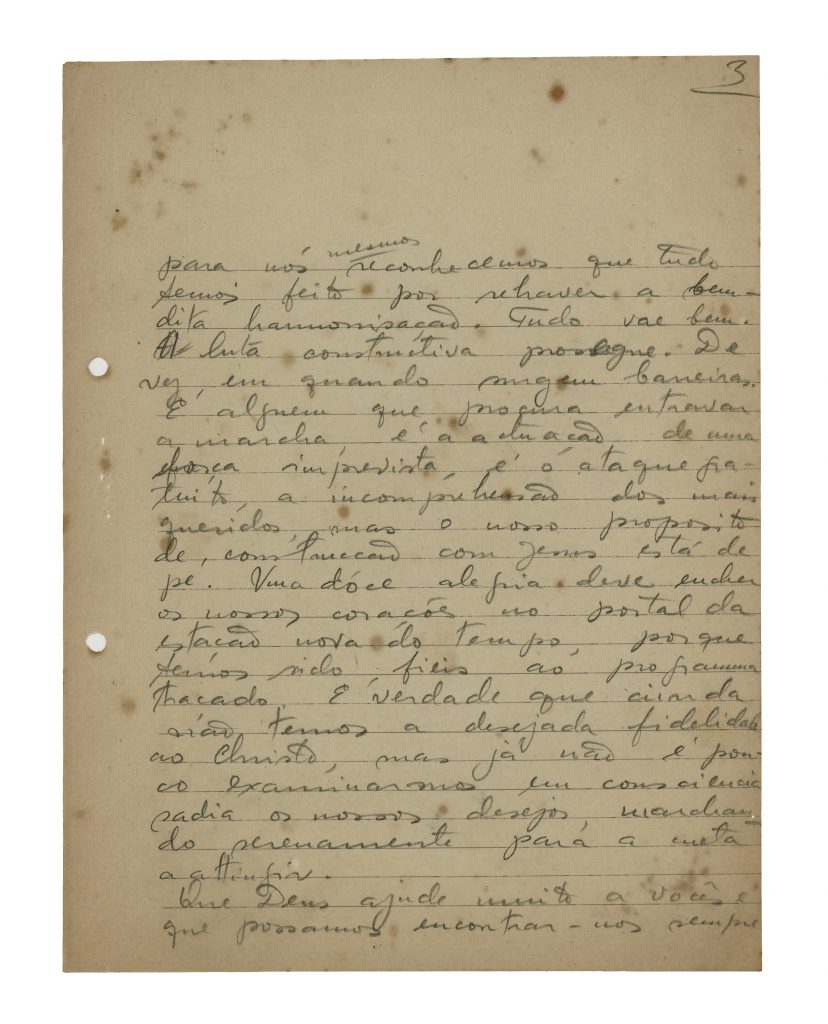 3
para nós mesmos reconhecemos que tudo
temos feito por rehaver a bem-
dita harmonisação. Tudo vae bem.
A luta constructiva prosegue. De
vez, em quando surgem barreiras.
E alguem que procura entravar
a marcha, é a actuação de uma
força imprevista, é o ataque gra-
tuito, a incomprehensão dos mais
queridos, mas o nosso proposito
de, construcção com Jesus está de
pé. Uma dôce alegria deve encher
os nossos corações no portal da
estação nova do tempo, porque
temos sido fieis ao programma
traçado. E verdade que ainda
não temos a desejada fidelidade
ao Christo, mas já não é pou-
co examinarmos em consciencia
sadia os nossos desejos, marchan-
do serenamente para a meta
a attingir.
Que Deus ajude muito a vocês e
que possamos encontrar-nos sempre